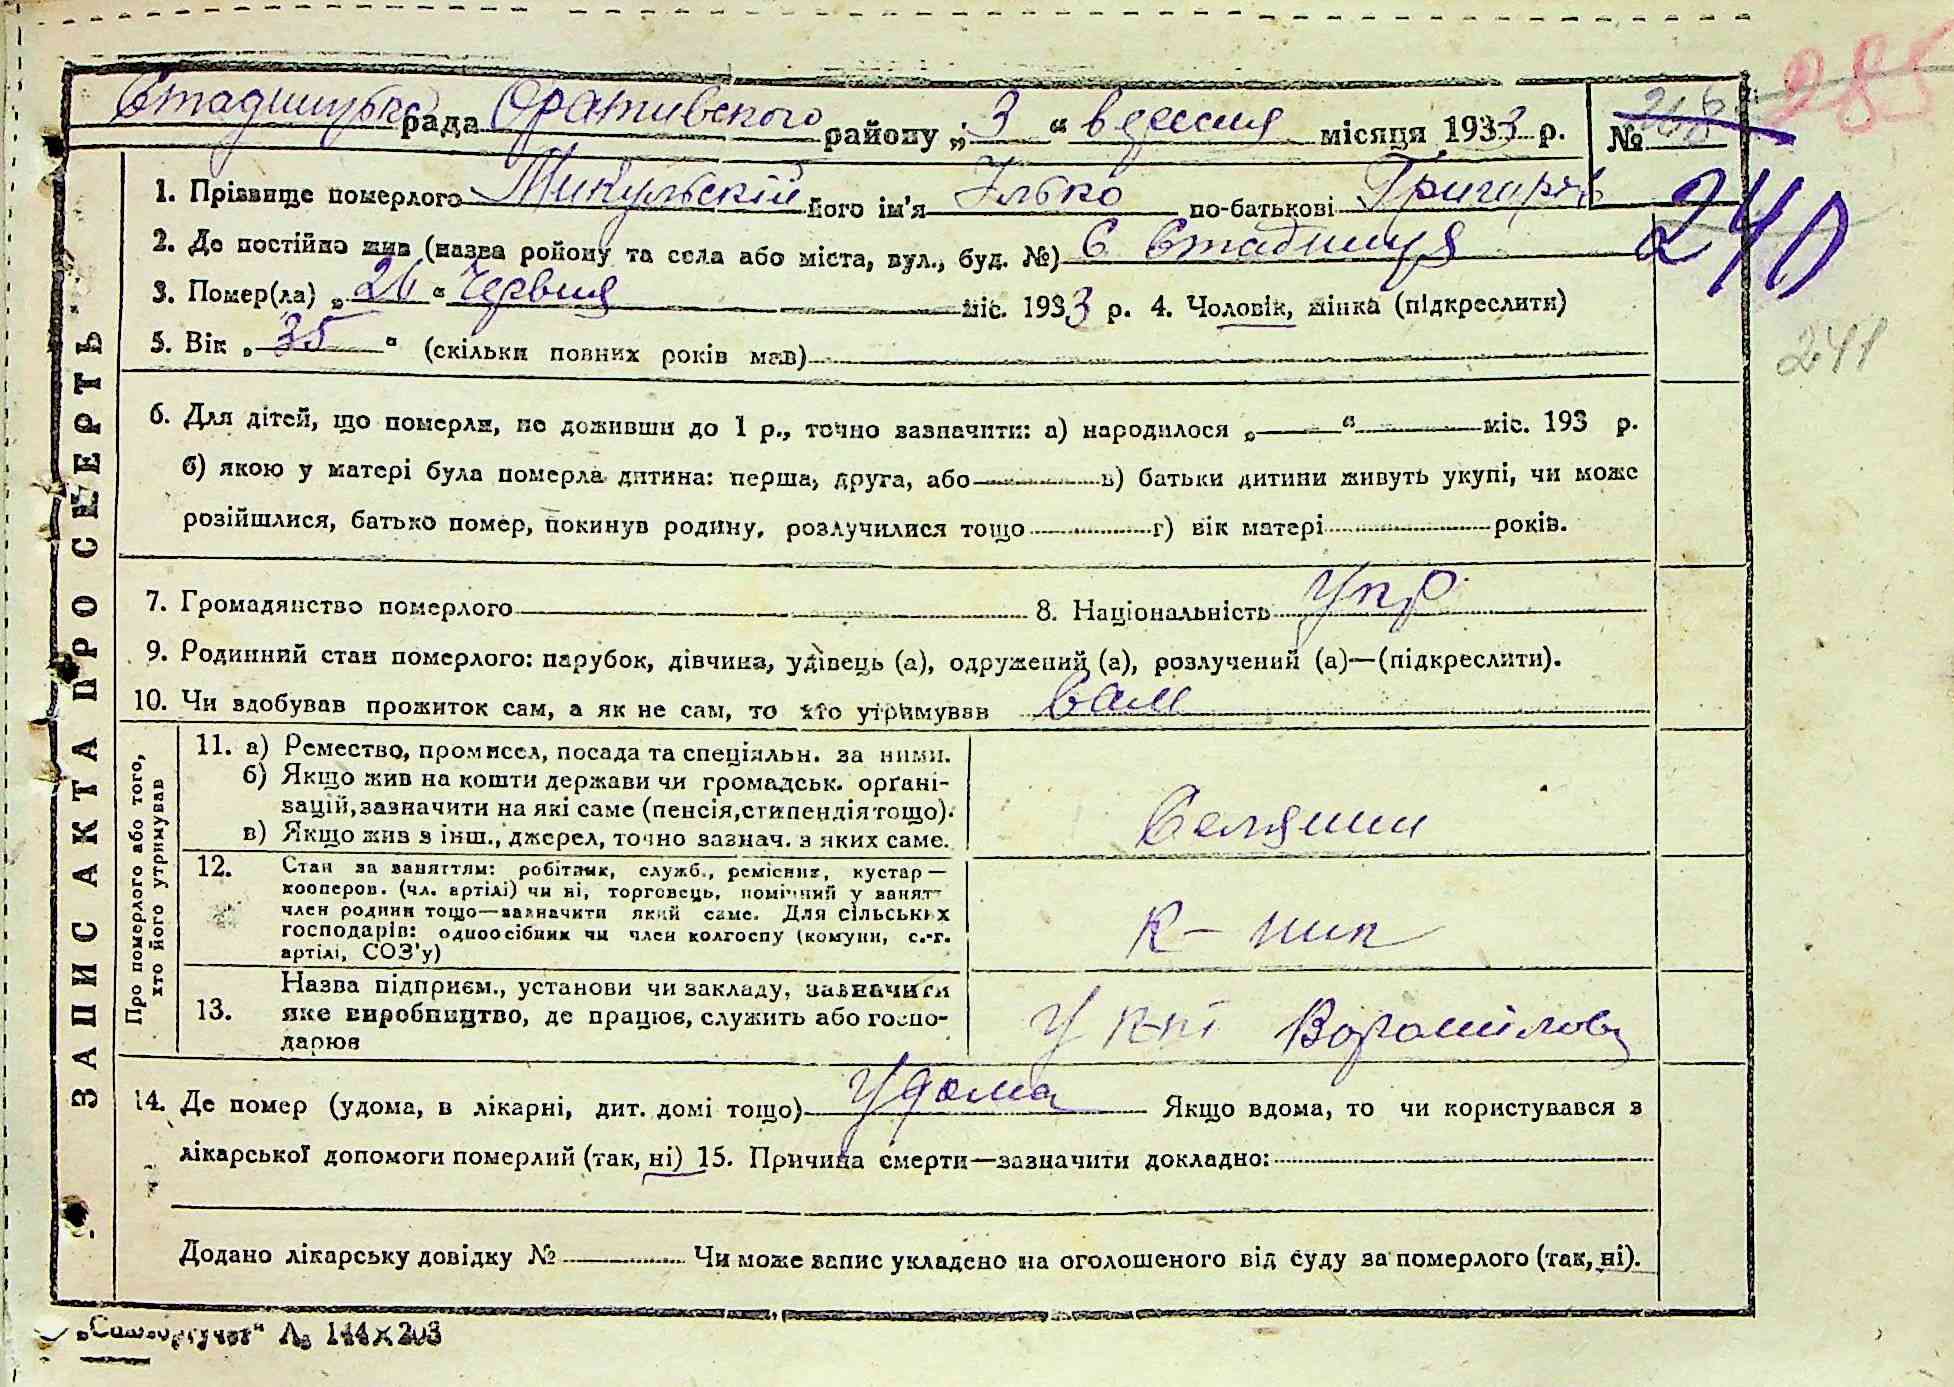 285
Стадницька рада Оратівського району „ 3 “ вересня місяця 1933 р. № 268
240
1. Прізвище померлого Микульскій його ім'я Ілько по-батькові Григорів
2. Де постійно жив (назва ройону та села або міста, вул., буд. №) С Стадниця
3. Помер(ла) „ 26 “ Червня міс. 1933 р. 4. Чоловік, жінка (підкреслити)
241
5. Вік „ 35 “ (скільки повних років мав)
6. Для дітей, що померли, не доживши до 1 р., точно зазначити: а) народилося „ “ міс. 193 р.
б) якою у матері була померла дитина: перша, друга, або в) батьки дитини живуть укупі, чи може
розійшлися, батько помер, покинув родину, розлучилися тощо г) вік матері років.
7. Громадянство померлого 8. Національність Укр
9. Родинний стан померлого: парубок, дівчина, удівець (а), одружений (а), розлучений (а)—(підкреслити).
10. Чи здобував прожиток сам, а як не сам, то хто утримував сам
ЗАПИС АКТА ПРО СМЕРТЬ
Про померлого або того, хто його утримував
11. а) Ремество, промисел, посада та спеціяльн. за ними.
б) Якщо жив на кошти держави чи громадськ. орґані-
зацій, зазначити на які саме (пенсія, стипендія тощо).
в) Якщо жив з інш., джерел, точно зазнач. з яких саме.
Селянин
12. Стан за заняттям: робітник, служб., ремісник, кустар—
кооперов. (чл. артілі) чи ні, торговець, помічний у занятт
член родини тощо—зазначити який саме. Для сільських
господарів: одноосібник чи член колгоспу (комуни, с.-г.
артілі, СОЗ'у)
К-ник
13. Назва підприєм., установи чи закладу, зазначити
яке виробництво, де працює, служить або госпо-
дарює
У к-пі Ворошилова
14. Де помер (удома, в лікарні, дит. домі тощо) Удома Якщо вдома, то чи користувався з
лікарської допомоги померлий (так, ні) 15. Причина смерти—зазначити докладно:
Додано лікарську довідку № Чи може запис укладено на оголошеного від суду за померлого (так, ні).
144×203